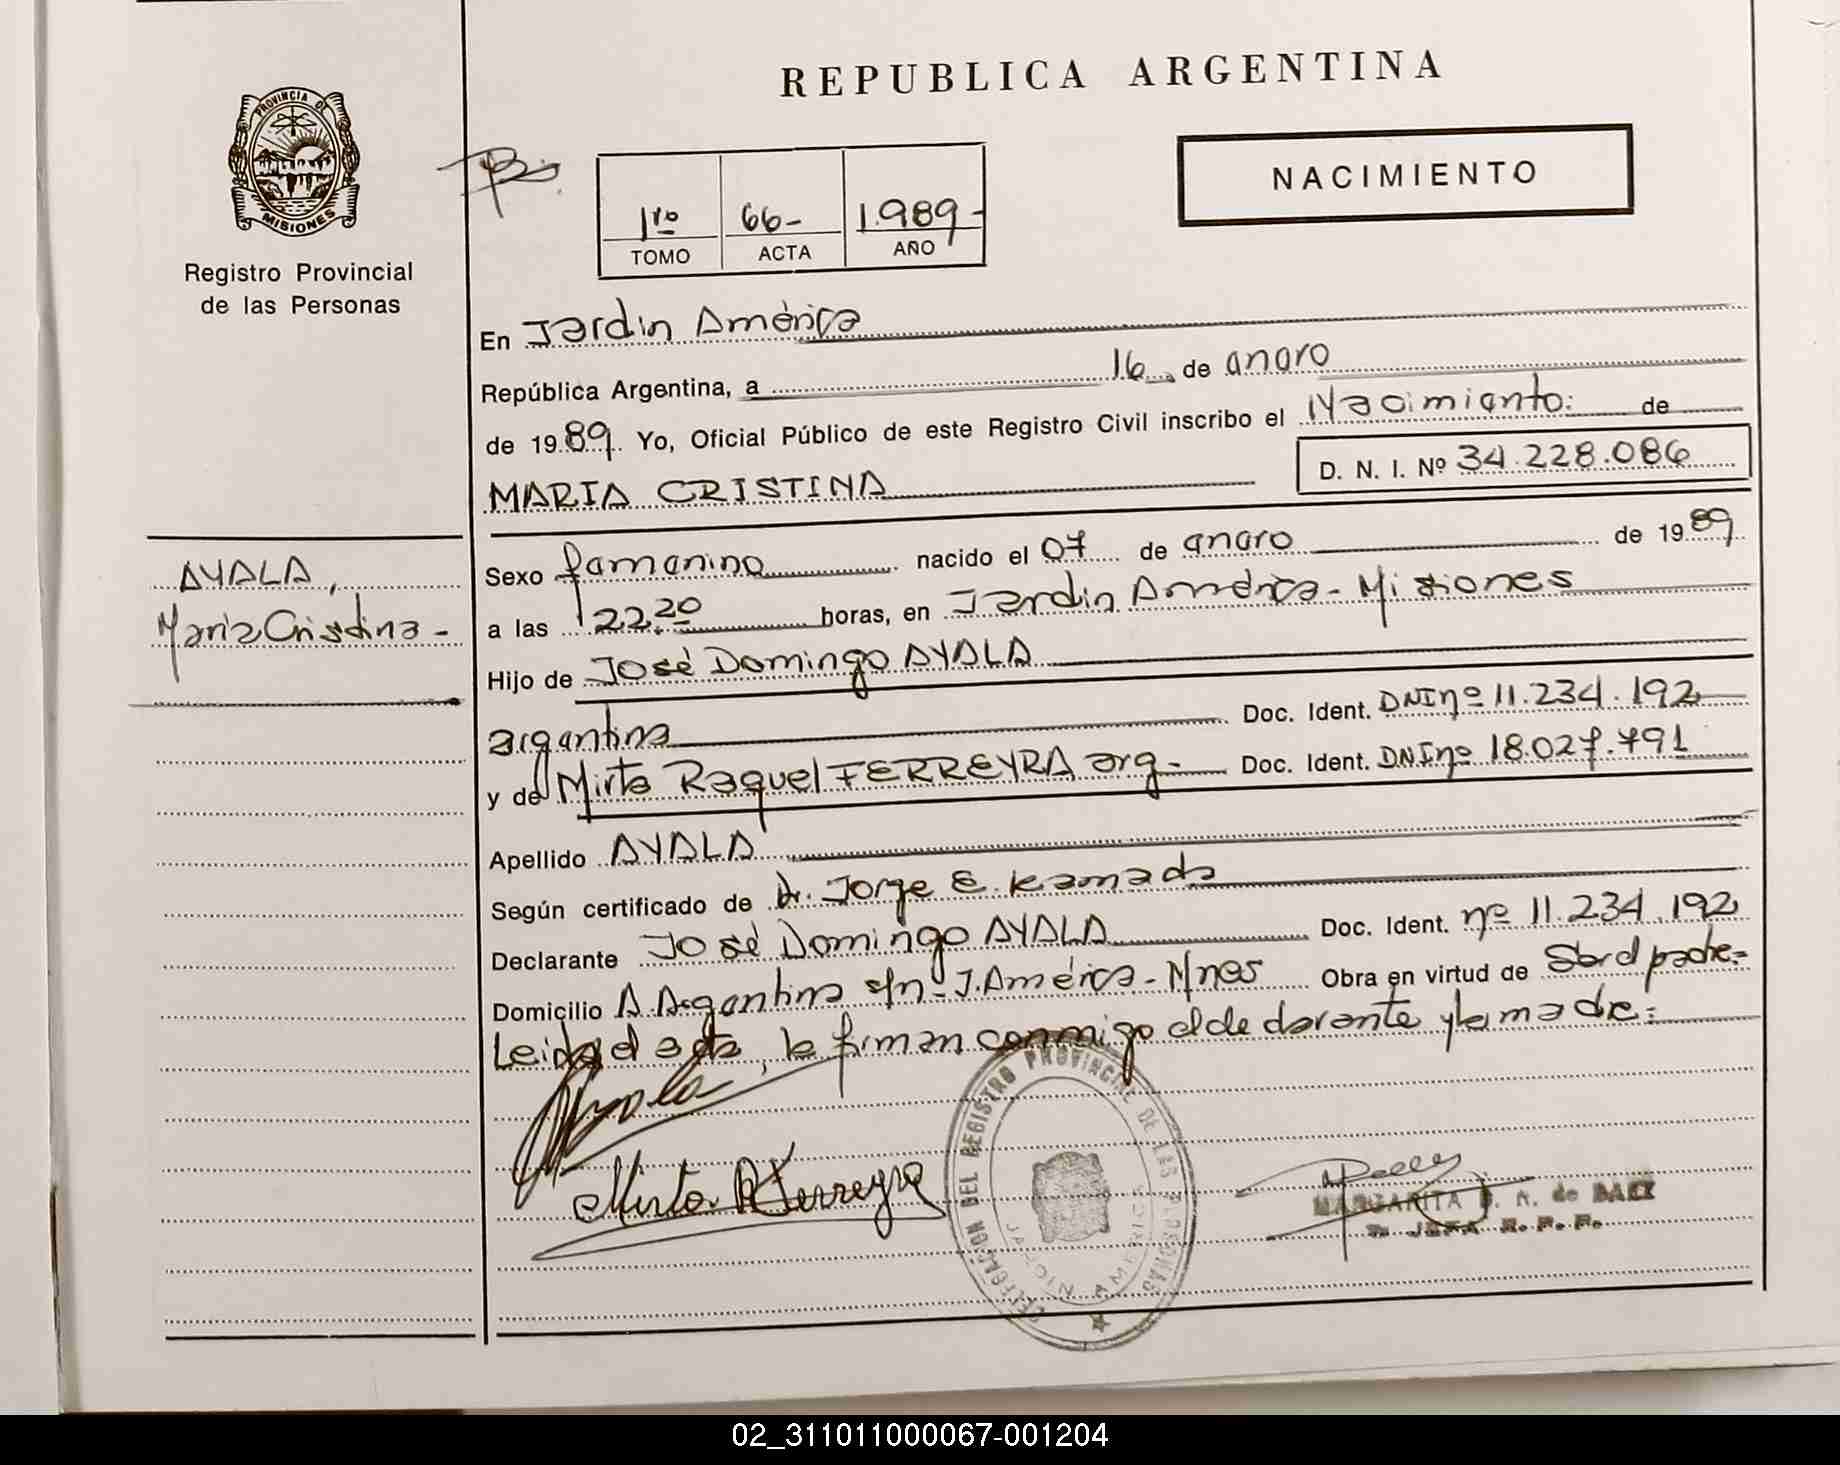 REPUBLICA ARGENTINA
PROVINCIA DE
MISIONES
Registro Provincial
de las Personas
1ro 66- 1.989-
TOMO ACTA AÑO
NACIMIENTO
En Jardin América
República Argentina, a 16 de enero
de 1989. Yo, Oficial Público de este Registro Civil inscribo el Nacimiento: de
D. N. I. Nº 34.228.086
MARIA CRISTINA
AYALA,
Maria Cristina -
Sexo femenino nacido el 07 de enero de 1989
a las 22.20 horas, en Jardin América - Misiones
Hijo de José Domingo AYALA
argentina Doc. Ident. DNI nº 11.234.192
y de Mirta Raquel FERREYRA arg- Doc. Ident. DNI nº 18.027.791
Apellido AYALA
Según certificado de Dr. Jorge E. Kamada
Declarante José Domingo AYALA Doc. Ident. nº 11.234.192
Domicilio A. Argentina s/nº J. América - Mnes Obra en virtud de Ser el padre=
Leida el acta, la firman conmigo el declarante y la madre=
Ayala
Mirta R Ferreyra
DEL REGISTRO PROVINCIAL DE LAS PERSONAS
JARDIN AMERICA
MARGARITA de BAEZ
JEFA R. P. P.
02_311011000067-001204